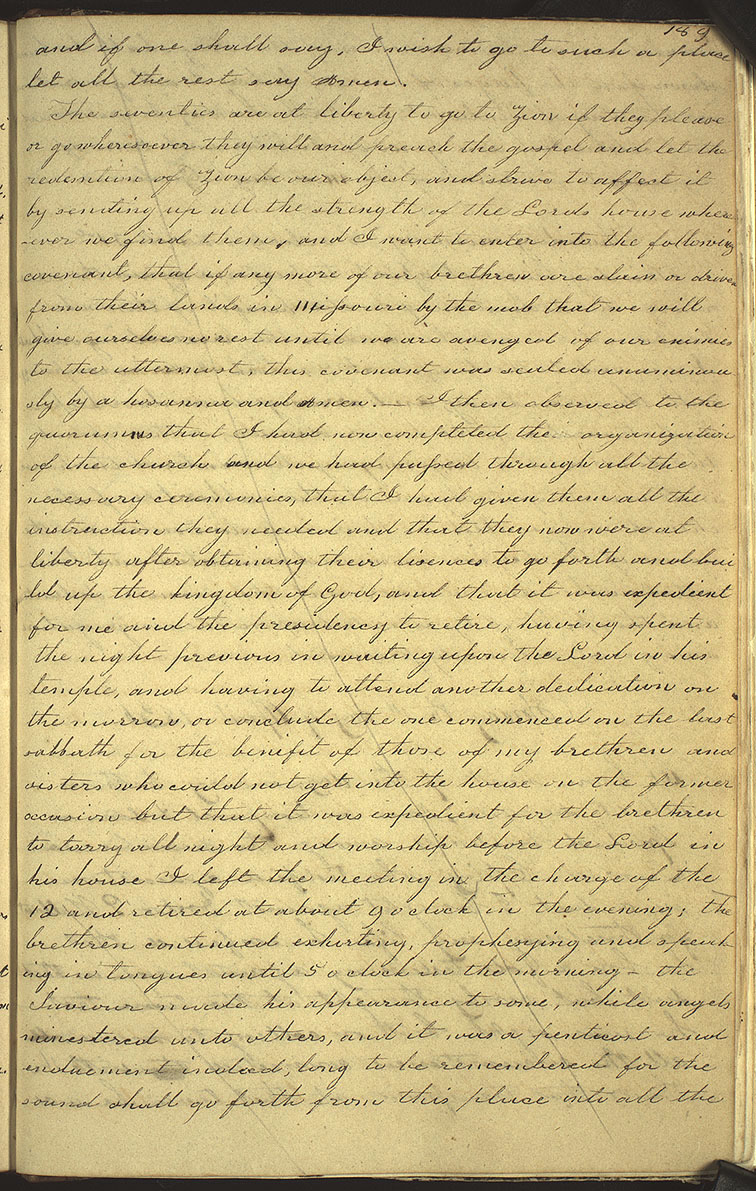 189
and if one shall say, I wish to go to such a place
let all the rest say Amen.
The seventies are at liberty to go to Zion if they please
or go wheresoever they will and preach the gospel and let the
redemtion of Zion be our object, and strive to affect it
by sending up all the strength of the Lords house where
-ever we find them, and I want to enter into the following
covenant, that if any more of our brethren are slain or driven
from their lands in Missouri by the mob that we will
give ourselves no rest until we are avenged of our enimies
to the uttermost, this covenant was sealed unanimou-
sly by a hosanna and Amen. — I then observed to the
quorums that I had now completed the organization
of the church and we had passed through all the
necessary ceremonies, that I had given them all the
instruction they needed and that they now were at
liberty after obtaining their lisences to go forth and bui
ld up the kingdom of God, and that it was expedient
for me and the presidency to retire, having spent
the night previous in waiting upon the Lord in his
temple, and having to attend another dedication on
the morrow, or conclude the one commenced on the last
sabbath for the benifit of those of my brethren and
sisters who could not get into the house on the former
occasion but that it was expedient for the brethren
to tarry all night and worship before the Lord in
his house I left the meeting in the charge of the
12 and retired at about 9 o clock in the evening; The
brethren continued exhorting, prophesying and speak
ing in tongues until 5 o clock in the morning – the
Saviour made his appearance to some, while angels
minestered unto others, and it was a penticost and
enduement indeed, long to be remembered for the
sound shall go forth from this place into all the